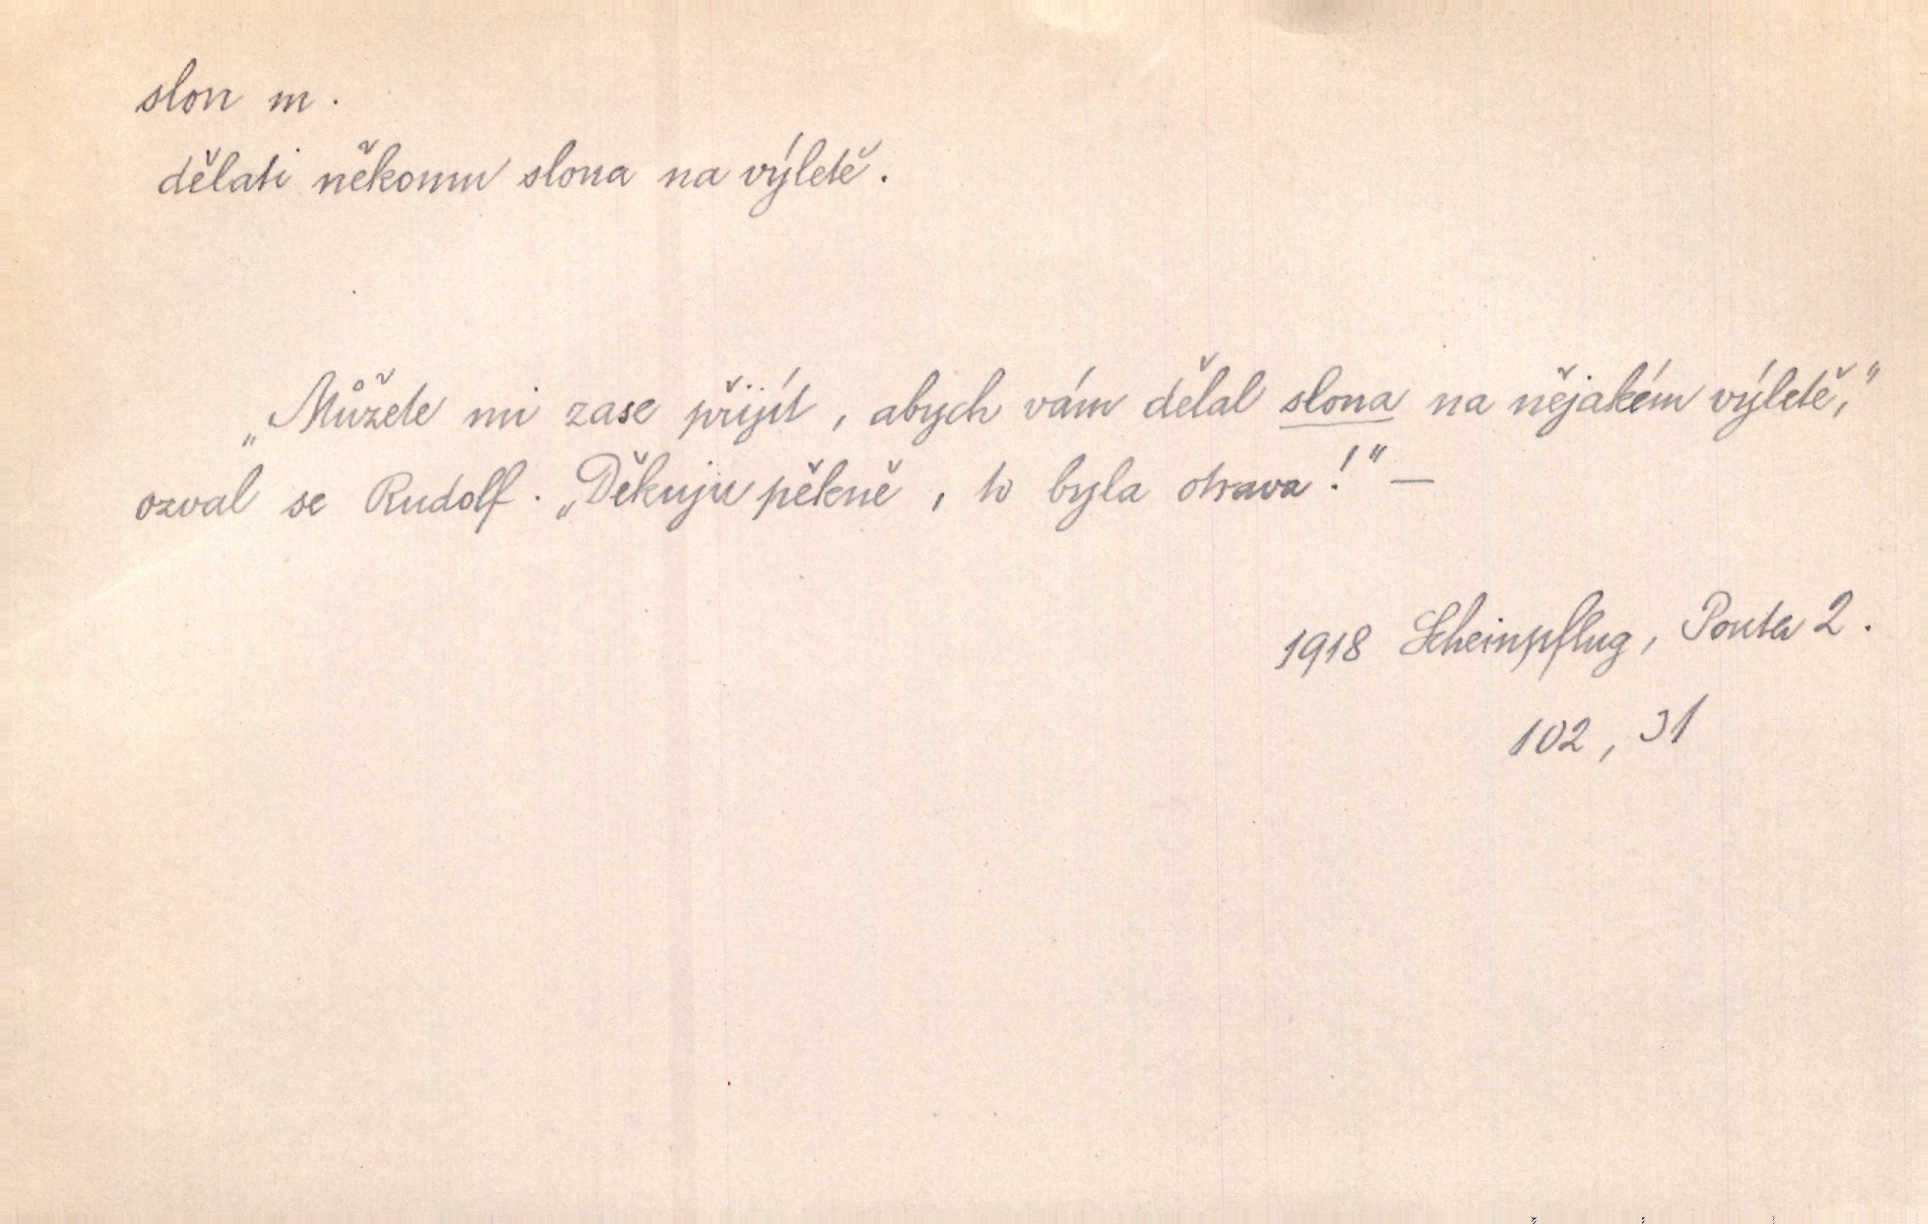 slon m.
dělati někomu slona na výletě.
„Můžete mi zase přijít, abych vám dělal slona na nějakém výletě,"
ozval se Rudolf. „Děkuju pěkně, to byla otrava!" —
1918 Scheinpflug, Pouta 2.
102, 31